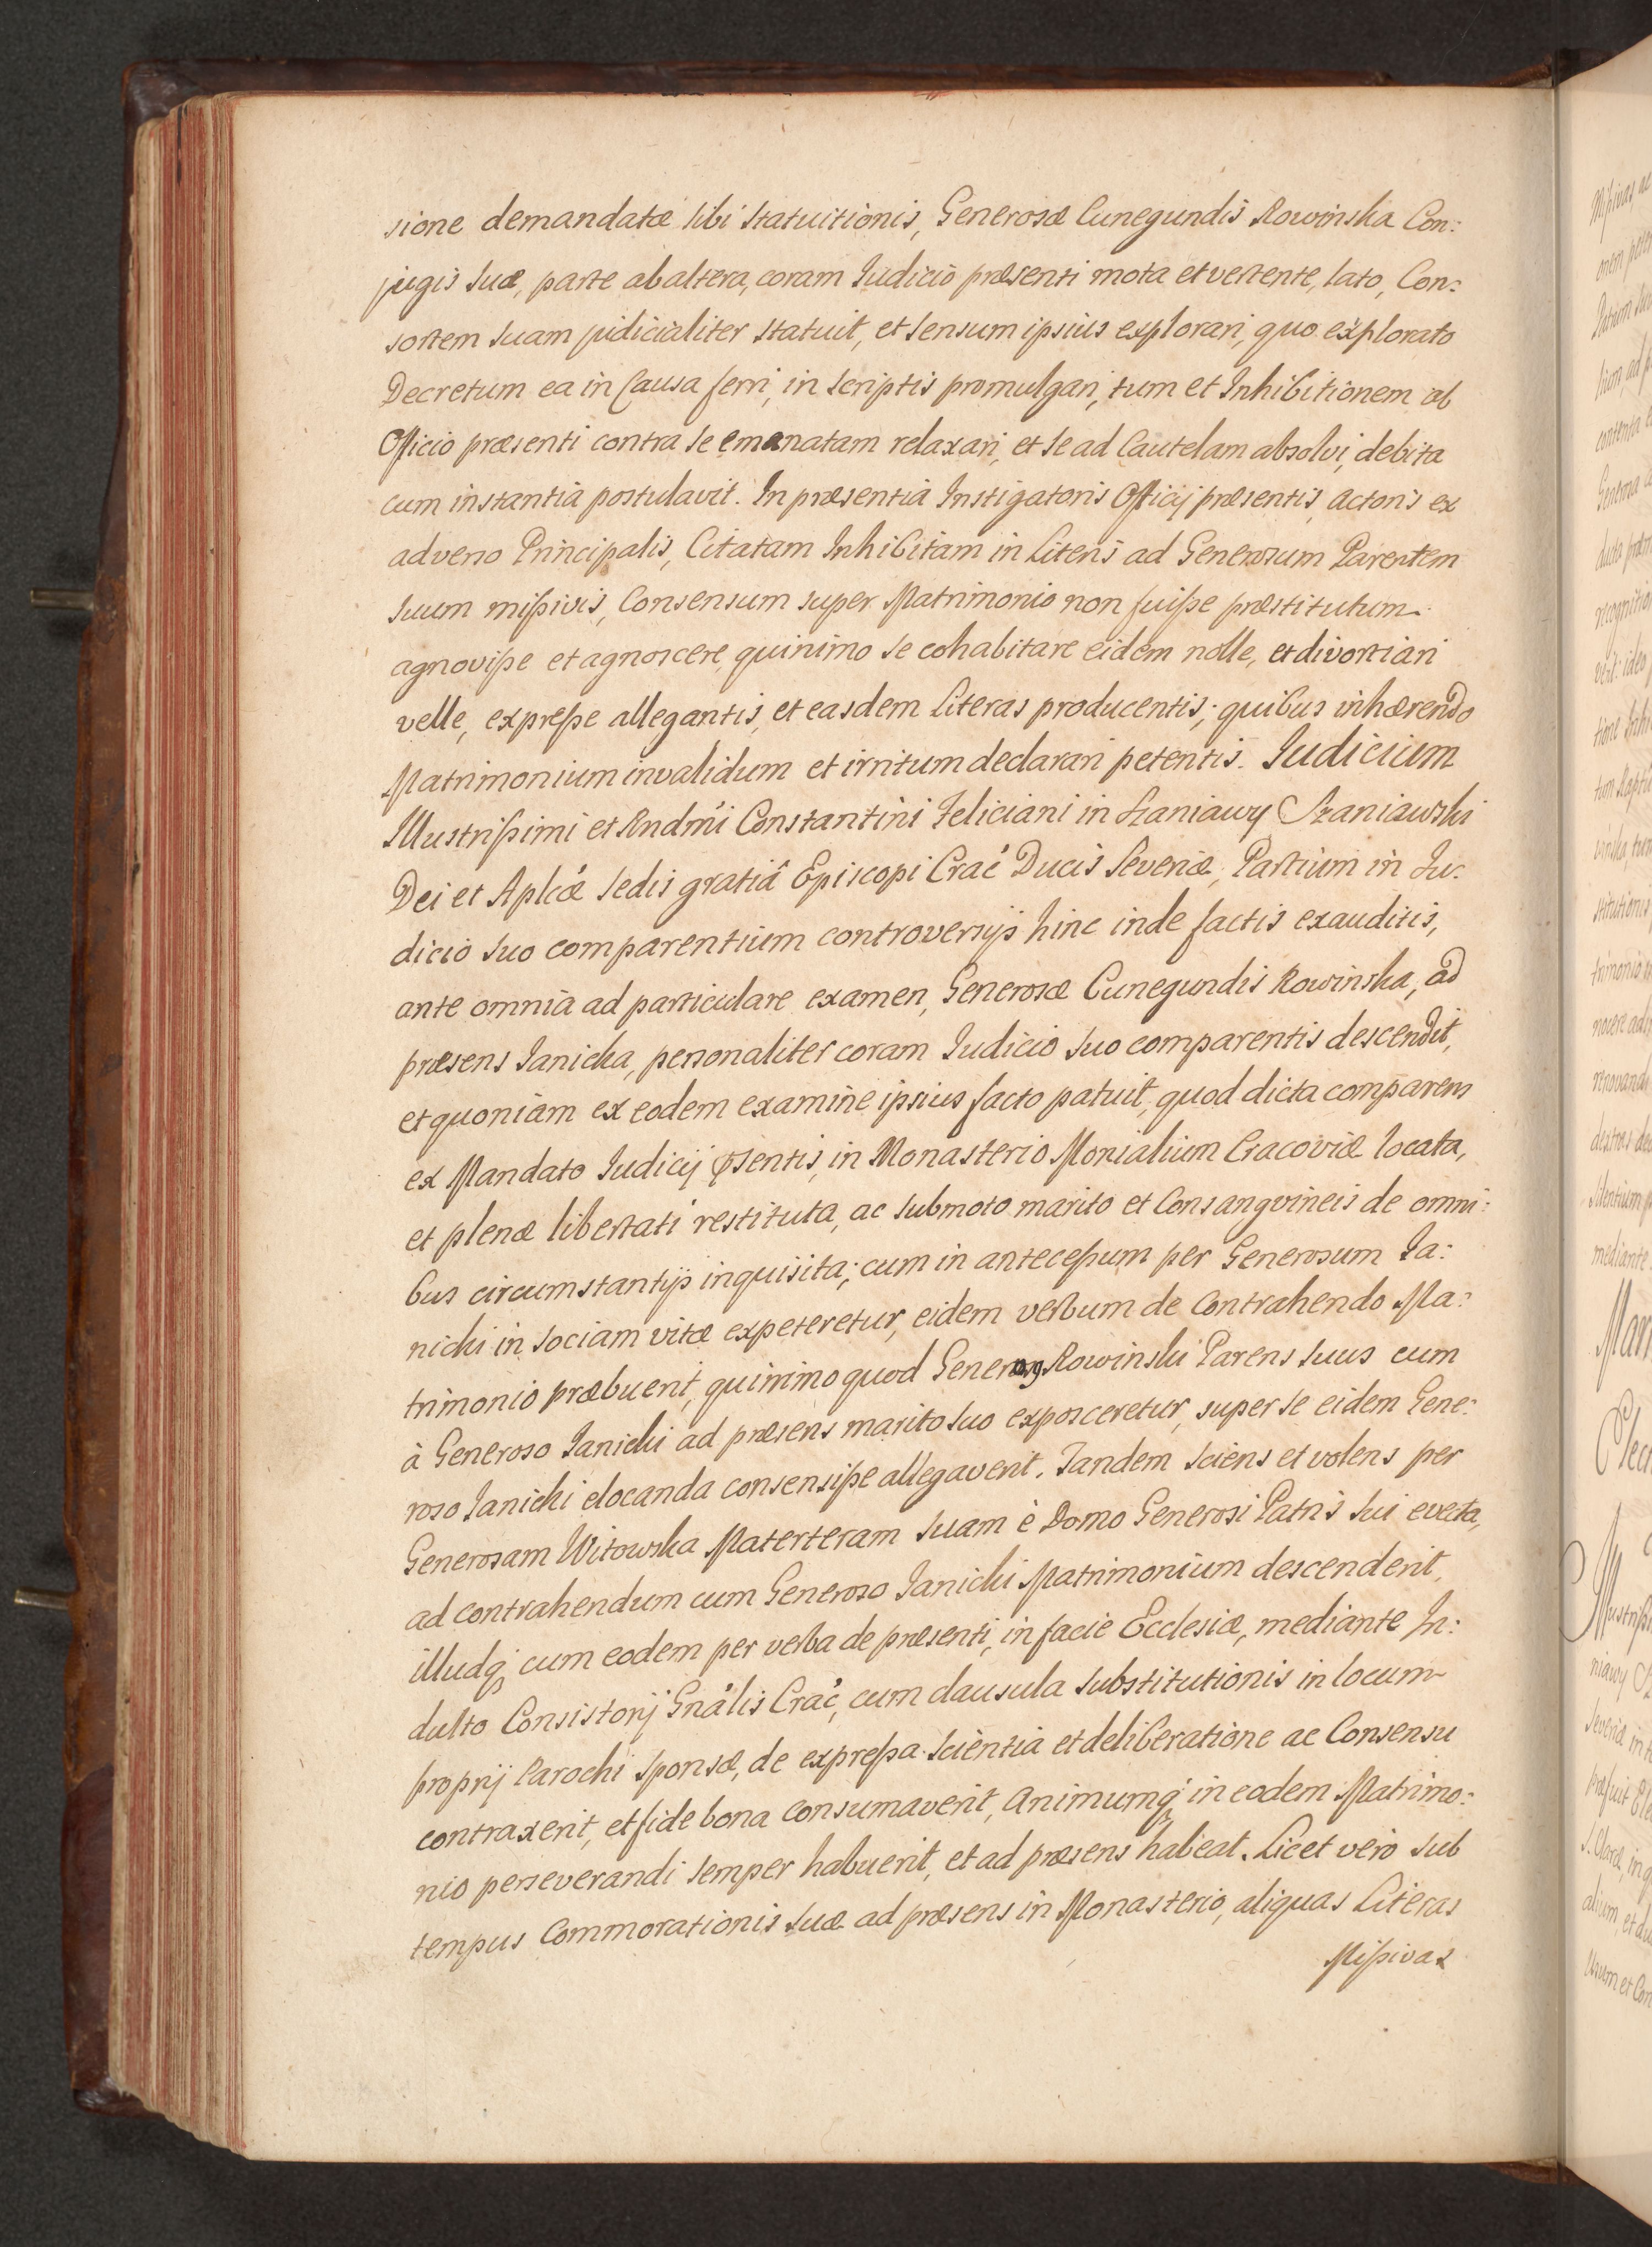 sione demandatæ sibi statuitionis, Generosæ Cunegundis Rowinska Con:
jugis suæ, parte ab altera, coram Iudicio præsenti mota et vertente, lato, Con:
sortem suam judicialiter statuit, et sensum ipsius explorari, quo explorato
Decretum ea in Causa ferri, in scriptis promulgari, tum et Inhibitionem ab
Officio præsenti contra se emanatam relaxari, et se ad Cautelam absolvi, debita
cum instantia postulavit. In præsentia Instigatoris Officij præsentis, actoris ex
adverso Principalis, Citatam Inhibitam in Literis ad Generosum Parentem
suum mißivis, Consensum super Matrimonio non fuiße præstitutum
agnoviße et agnoscere, quinimo se cohabitare eidem nolle, et divortiari
velle, expreße allegantis, et easdem Literas producentis; quibus inhærendo
Matrimonium invalidum et irritum declarari petentis. Iudicium
Illustrißimi et Rndmi Constantini Feliciani in Szaniawy Szaniawski
Dei et Aplcæ Sedis gratiâ Episcopi Crac Ducis Severiæ, Partium in Iu:
dicio suo comparentium controversijs hinc inde factis exauditis,
ante omnia ad particulare examen, Generosæ Cunegundis Rowinska, ad
præsens Ianicka, personaliter coram Iudicio suo comparentis descendit,
et quoniam ex eodem examine ipsius facto patuit, quod dicta comparens
ex Mandato Iudicij psentis, in Monasterio Monialium Cracoviæ locata,
et plenæ libertati restituta, ac submoto marito et Consangvineis de omni:
bus circumstantijs inquisita; cum in anteceßum per Generosum Ia:
nicki in sociam vitæ expeteretur, eidem verbum de Contrahendo Ma:
trimonio præbuerit, quinimo quod Generos9 Rowinski Parens suus cum
à Generoso Ianicki ad præsens marito suo exposceretur, super se eidem Gene:
roso Ianicki elocanda consensiße allegaverit. Tandem sciens et volens per
Generosam Witowska Materteram suam è Domo Generosi Patris sui evecta,
ad contrahendum cum Generoso Ianicki Matrimonium descenderit,
illudq; cum eodem per verba de præsenti, in facie Ecclesiæ, mediante In:
dulto Consistorij Gnâlis Crac, cum clausula substitutionis in locum
proprij Parochi Sponsæ, de expreßa scientia et deliberatione ac Consensu
contraxerit, et fide bona consumaverit, Animumq; in eodem Matrimo:
nio perseverandi semper habuerit, et ad præsens habeat. Licet vero sub
tempus Commorationis suæ ad præsens in Monasterio, aliquas Literas
Mißivas